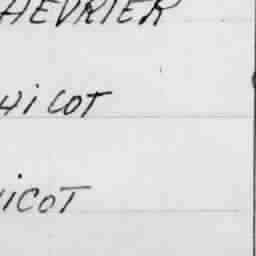 HEVRIER
HiCOT
iCOT